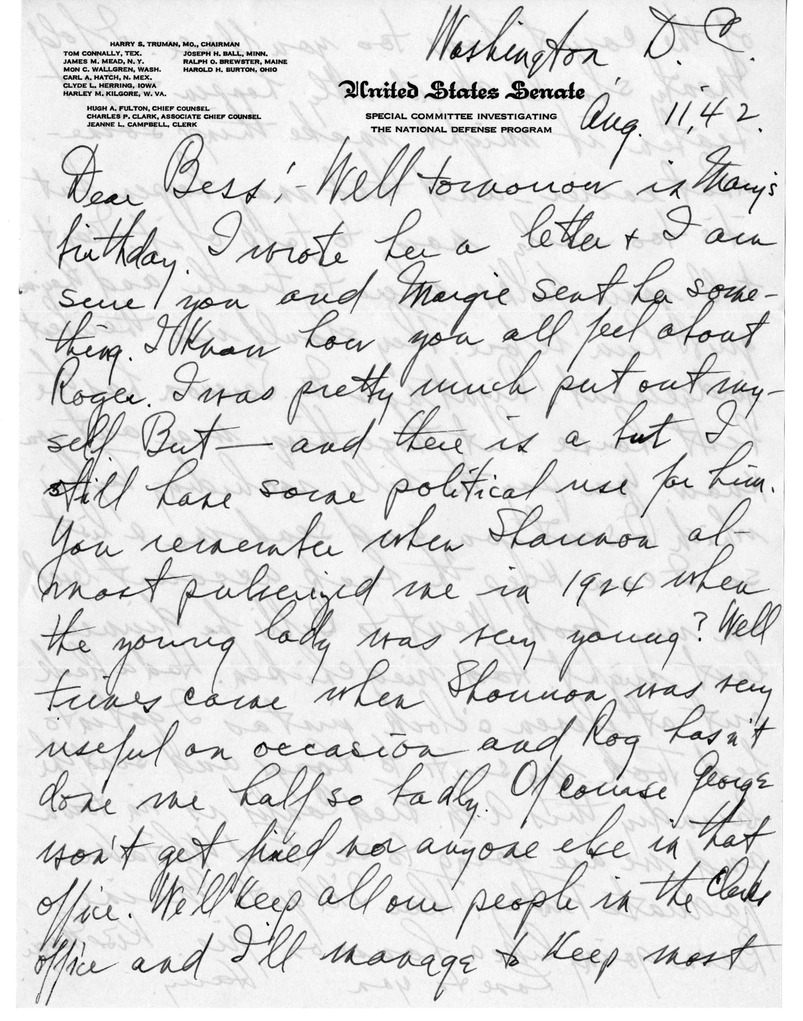 Washington D. C.
HARRY S. TRUMAN, MO., CHAIRMAN
TOM CONNALLY, TEX. JOSEPH H. BALL, MINN.
JAMES M. MEAD, N. Y. RALPH O. BREWSTER, MAINE
MON C. WALLGREN, WASH. HAROLD H. BURTON, OHIO
CARL A. HATCH, N. MEX.
CLYDE L. HERRING, IOWA
HARLEY M. KILGORE, W. VA.
HUGH A. FULTON, CHIEF COUNSEL
CHARLES P. CLARK, ASSOCIATE CHIEF COUNSEL
JEANNE L. CAMPBELL, CLERK
United States Senate
SPECIAL COMMITTEE INVESTIGATING
THE NATIONAL DEFENSE PROGRAM
Aug. 11, 42.
Dear Bess:- Well tomorrow is Mary's
birthday. I wrote her a letter & I am
sure you and Margie sent her some-
thing. I know how you all feel about
Roger. I was pretty much put out my-
self But — and there is a but I
still have some political use for him.
You remember when Shannon al-
most pulverized me in 1924 when
the young lady was very young? Well
times came when Shannon was very
useful on occasion and Rog hasn't
done me half so badly. Of course George
won't get fired nor anyone else in that
office. We'll keep all our people in the Clerks
office and I'll manage to keep most